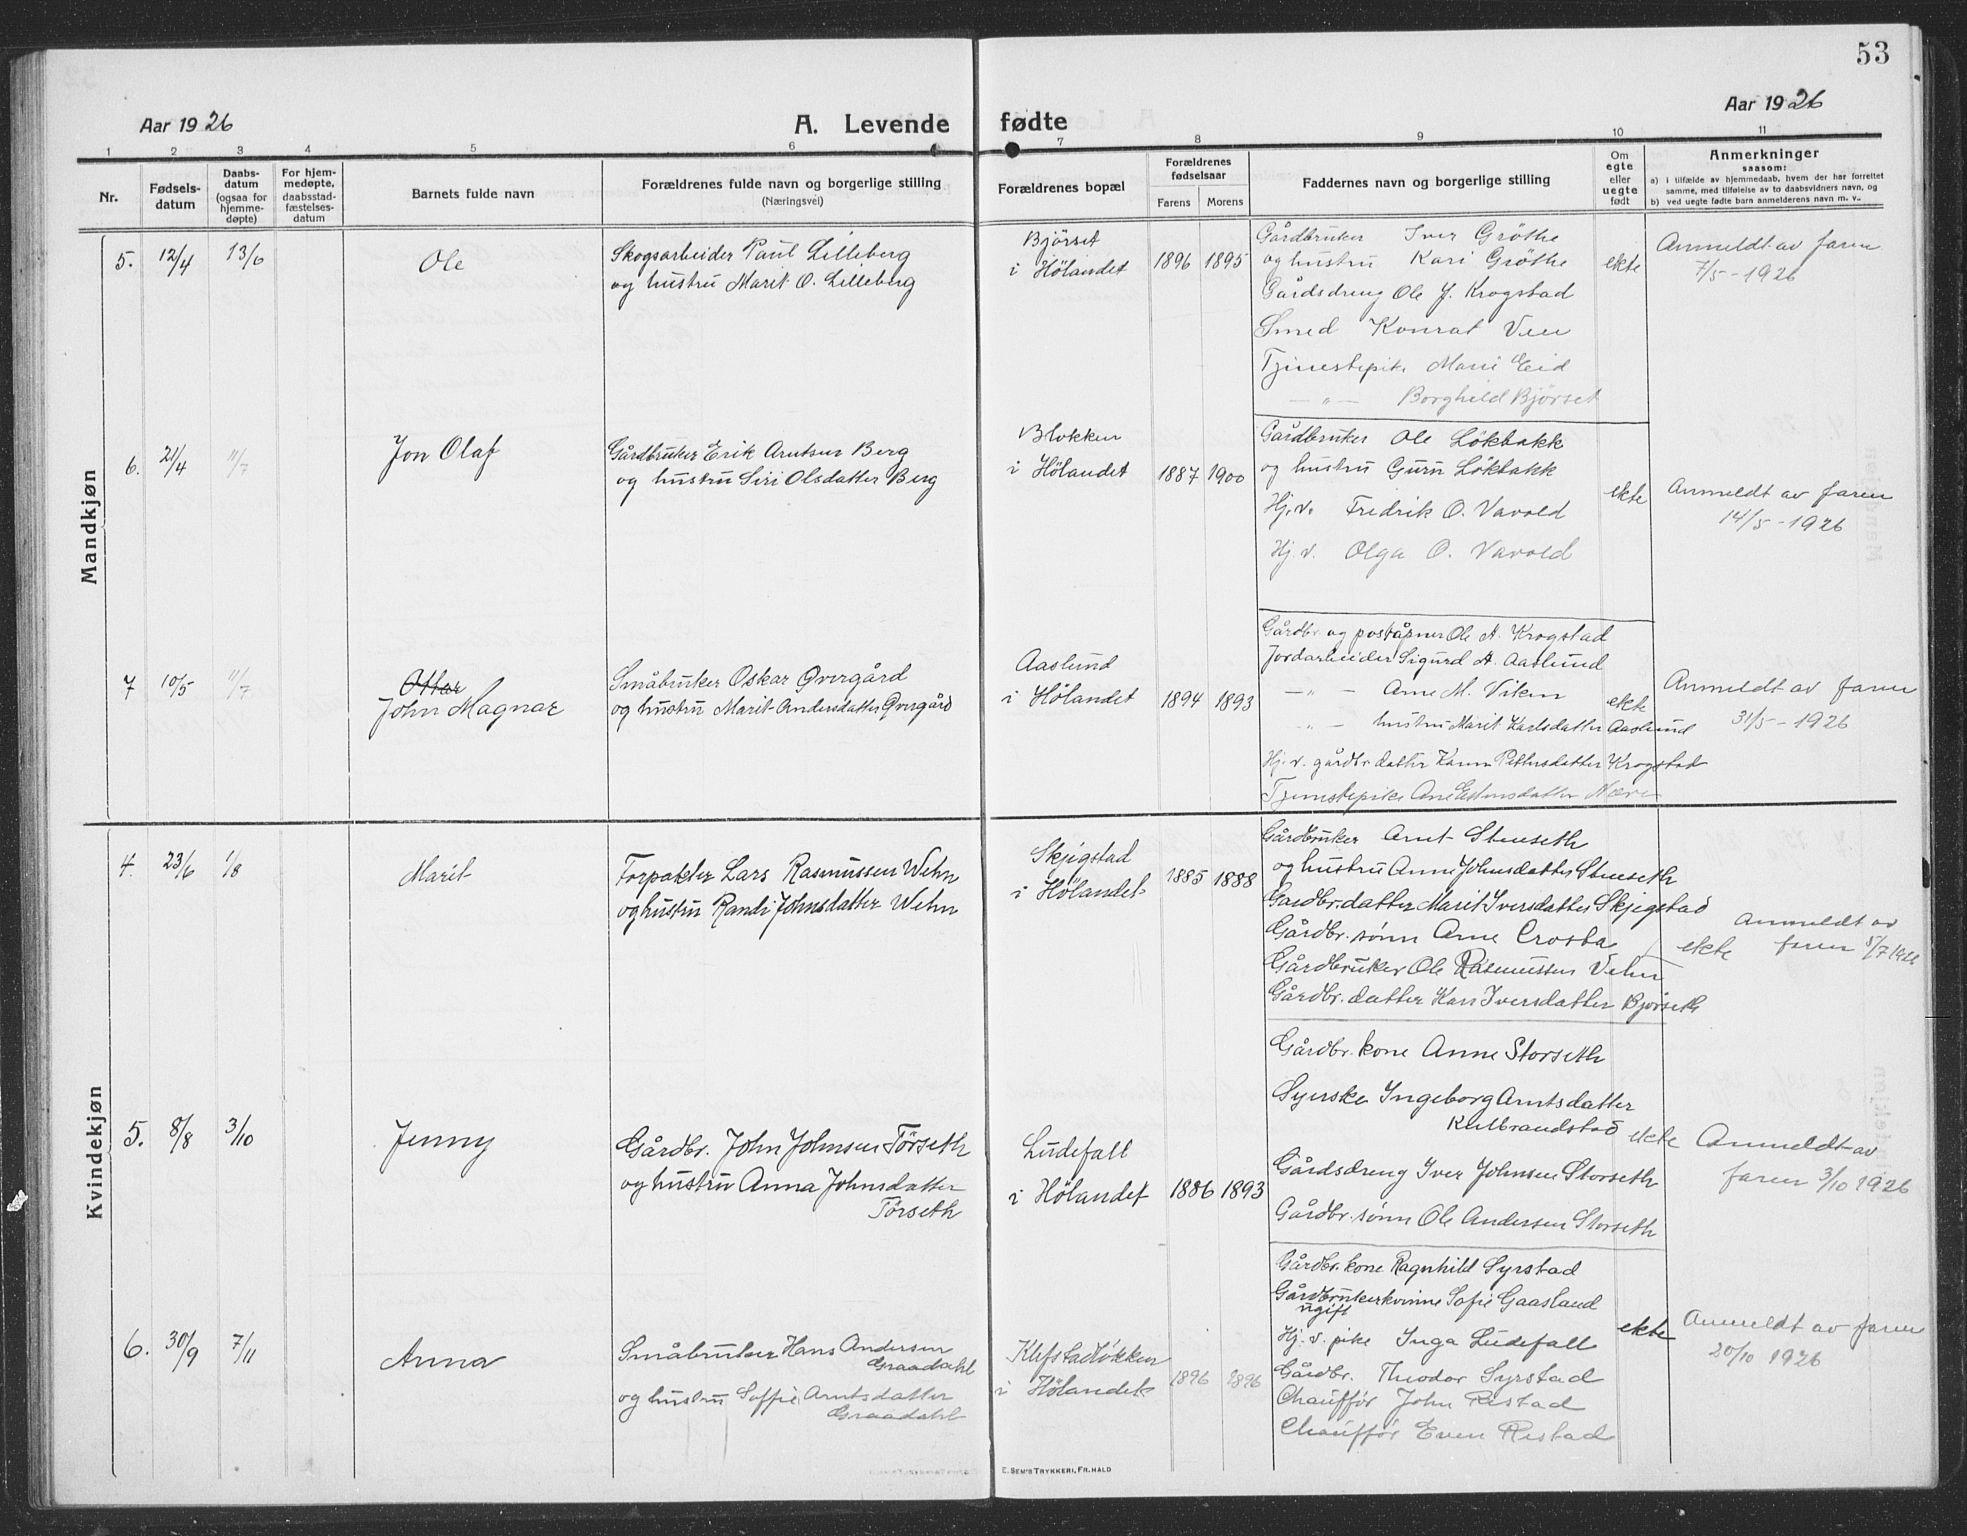 53
Aar 1926
A. Levende fødte
Aar 1926
1 2 3 4 5 6 7 8 9 10 11
Nr.
Fødsels-
datum
Daabs-
datum
(ogsaa for
hjemme-
døpte)
For hjem-
medøpte,
daabsstad-
fæstelses-
datum
Barnets fulde navn
Forældrenes fulde navn og borgerlige stilling
(Næringsvei)
Forældrenes bopæl
Forældrenes
fødselsaar
Farens Morens
Faddernes navn og borgerlige stilling
Om
egte
eller
uegte
født
Anmerkninger
saasom:
a) i tilfælde av hjemmedaab, hvem der har forrettet
samme, med tilføielse av to daabsvidners navn, og
b) ved uegte fødte barn anmelderens navn m. v..
Mandkjøn
5. 12/4 13/6 Ole
Skogsarbeider Paul Lilleberg
og hustru Marit O. Lilleberg
Bjørset
i Hölandet
1896 1895
Gårdbruker Iver Gröthe
og hustru Kari Gröthe
Gårdsdreng Ole J. Krogstad
Smed Konrat Veen
Tjenestepike Marie Eid
— „ — Borghild Bjørset
ekte
Anmeldt av faren
7/5 - 1926
6. 21/4 11/7 Jon Olaf
Gårdbruker Erik Arntsen Berg
og hustru Siri Olsdatter Berg
Blokken
i Hölandet
1887 1900
Gårdbruker Ole Lökbakk
og hustru Guru Lökbakk
Hj. v. Fredrik O. Vavold
Hj. v. Olga O. Vavold
ekte
Anmeldt av faren
14/5 - 1926
7 10/5 11/7 Ottar
John Magnar
Småbruker Oskar Øvergård
og hustru Marit Andersdatter Øvergård
Aaslund
i Hölandet
1894 1893
Gårdbr og poståpner Ole A. Krogstad
Jordarbeider Sigurd A. Aaslund
— „ — Arne M. Viken
— „ — hustru Marit Karlsdatter Aaslund
Hj. v. gårdbr datter Karen Pettersdatter Krogstad
Tjenestepike Ane Estensdatter Næve
ekte
Anmeldt av faren
31/5 - 1926
Kvindekjøn
4. 23/6 1/8 Marit
Forpakter Lars Rasmussen Wehn
og hustru Randi Johnsdatter Wehn
Skjigstad
i Hölandet
1885 1888
Gårdbruker Arnt Stenseth
og hustru Anne Johnsdatter Stenseth
Gardbr. datter Marit Iversdatter Skjegstad
Gårdbr. sønn Arne Crosba
Gårdbruker Ole Rasmussen Vehn
Gårdbr. datter Kari Iversdatter Bjørseth
ekte
Anmeldt av
faren 5/7 1926
5. 8/8 3/10 Jenny
Gårdbr. John Johnsen Törseth
og hustru Anna Johnsdatter
Törseth
Ludefall
i Hölandet
1886 1893
Gårdbr. kone Anne Storseth
Syerske Ingeborg Arntsdatter
Kulbrandstad
Gårdsdreng Iver Johnsen Storseth
Gårdbr. sønn Ole Andersen Storseth
ekte
Anmeldt av
faren 3/10 1926
6. 30/9 7/11 Anna
Småbruker Hans Andersen
Graadahl
og hustru Soffie Arntsdatter
Graadahl
Klefstadløkken
i Hölandet
1896 1896
Gårdbr. kone Ragnhild Syrstad
Gårdbrukerkvinne Sofie Gaasland
ugift
Hj. v. pike Inga Ludefall
Gårdbr. Theodor Syrstad
Chauffør John Ristad
Chauffør Even Ristad
ekte
Anmeldt av faren
20/10 1926
E. Sem's Trykkeri, Fr.hald